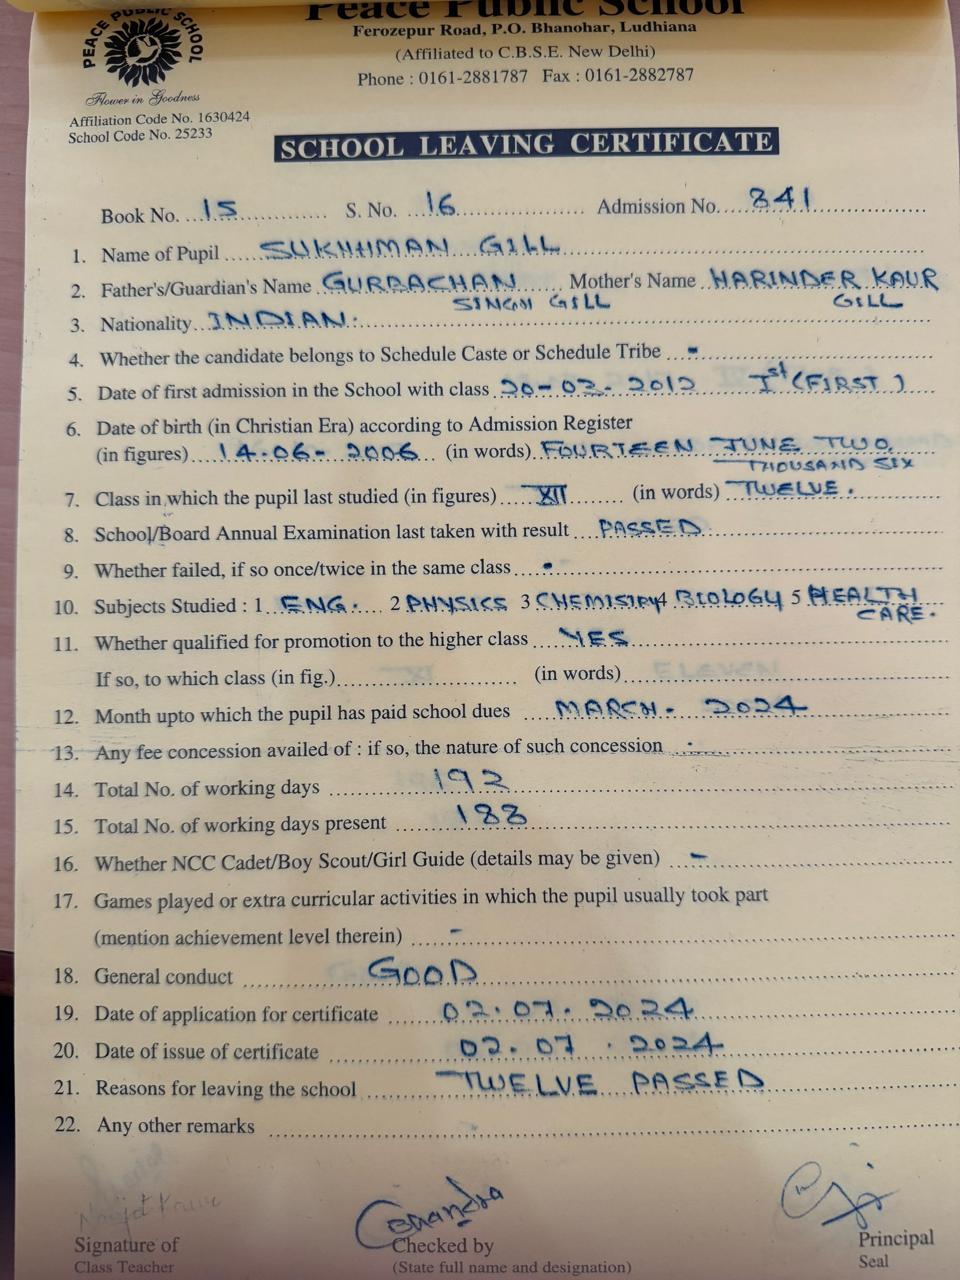 Peace Public School
PEACE PUBLIC SCHOOL
Ferozepur Road, P.O. Bhanohar, Ludhiana
(Affiliated to C.B.S.E. New Delhi)
Phone : 0161-2881787 Fax : 0161-2882787
Flower in Goodness
Affiliation Code No. 1630424
School Code No. 25233
SCHOOL LEAVING CERTIFICATE
Book No. 15 S. No. 16 Admission No. 841
1. Name of Pupil SUKHMAN GILL
2. Father's/Guardian's Name GURBACHAN Mother's Name HARINDER KAUR
SINGH GILL GILL
3. Nationality INDIAN.
4. Whether the candidate belongs to Schedule Caste or Schedule Tribe -
5. Date of first admission in the School with class 20-02-2012 Ist (FIRST)
6. Date of birth (in Christian Era) according to Admission Register
(in figures) 14.06-2006 (in words) FOURTEEN JUNE TWO
THOUSAND SIX
7. Class in which the pupil last studied (in figures) XII (in words) TWELVE.
8. School/Board Annual Examination last taken with result PASSED
9. Whether failed, if so once/twice in the same class -
10. Subjects Studied : 1 ENG. 2 PHYSICS 3 CHEMISTRY 4 BIOLOGY 5 HEALTH
CARE.
11. Whether qualified for promotion to the higher class YES
If so, to which class (in fig.) (in words)
12. Month upto which the pupil has paid school dues MARCH - 2024
13. Any fee concession availed of : if so, the nature of such concession -
14. Total No. of working days 192
15. Total No. of working days present 188
16. Whether NCC Cadet/Boy Scout/Girl Guide (details may be given) -
17. Games played or extra curricular activities in which the pupil usually took part
(mention achievement level therein) -
18. General conduct GOOD
19. Date of application for certificate 02.07.2024
20. Date of issue of certificate 02.07.2024
21. Reasons for leaving the school TWELVE PASSED
22. Any other remarks -
Signature of
Class Teacher
Checked by
(State full name and designation)
Principal
Seal